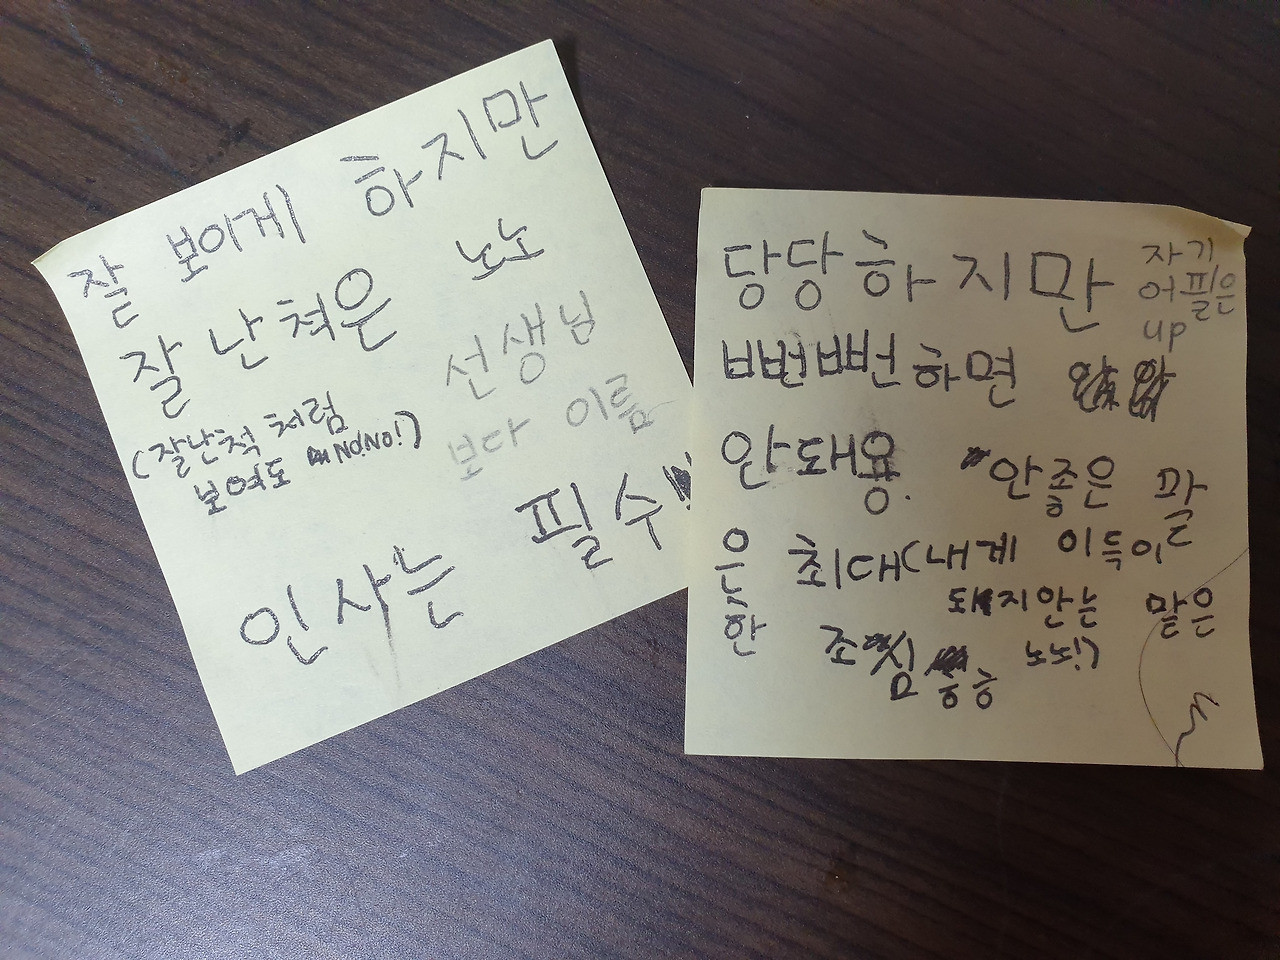 잘 보이게 하지만
잘난척은 노노
(잘난척 처럼
보여도 NO!NO!)
선생님
보다 이름
인사는 필수
당당하지만
자기
어필은
up
뻔뻔하면
안돼용.
안좋은 말
은 최대한
(내게 이득이
되지안는 말은
노노!)
조심